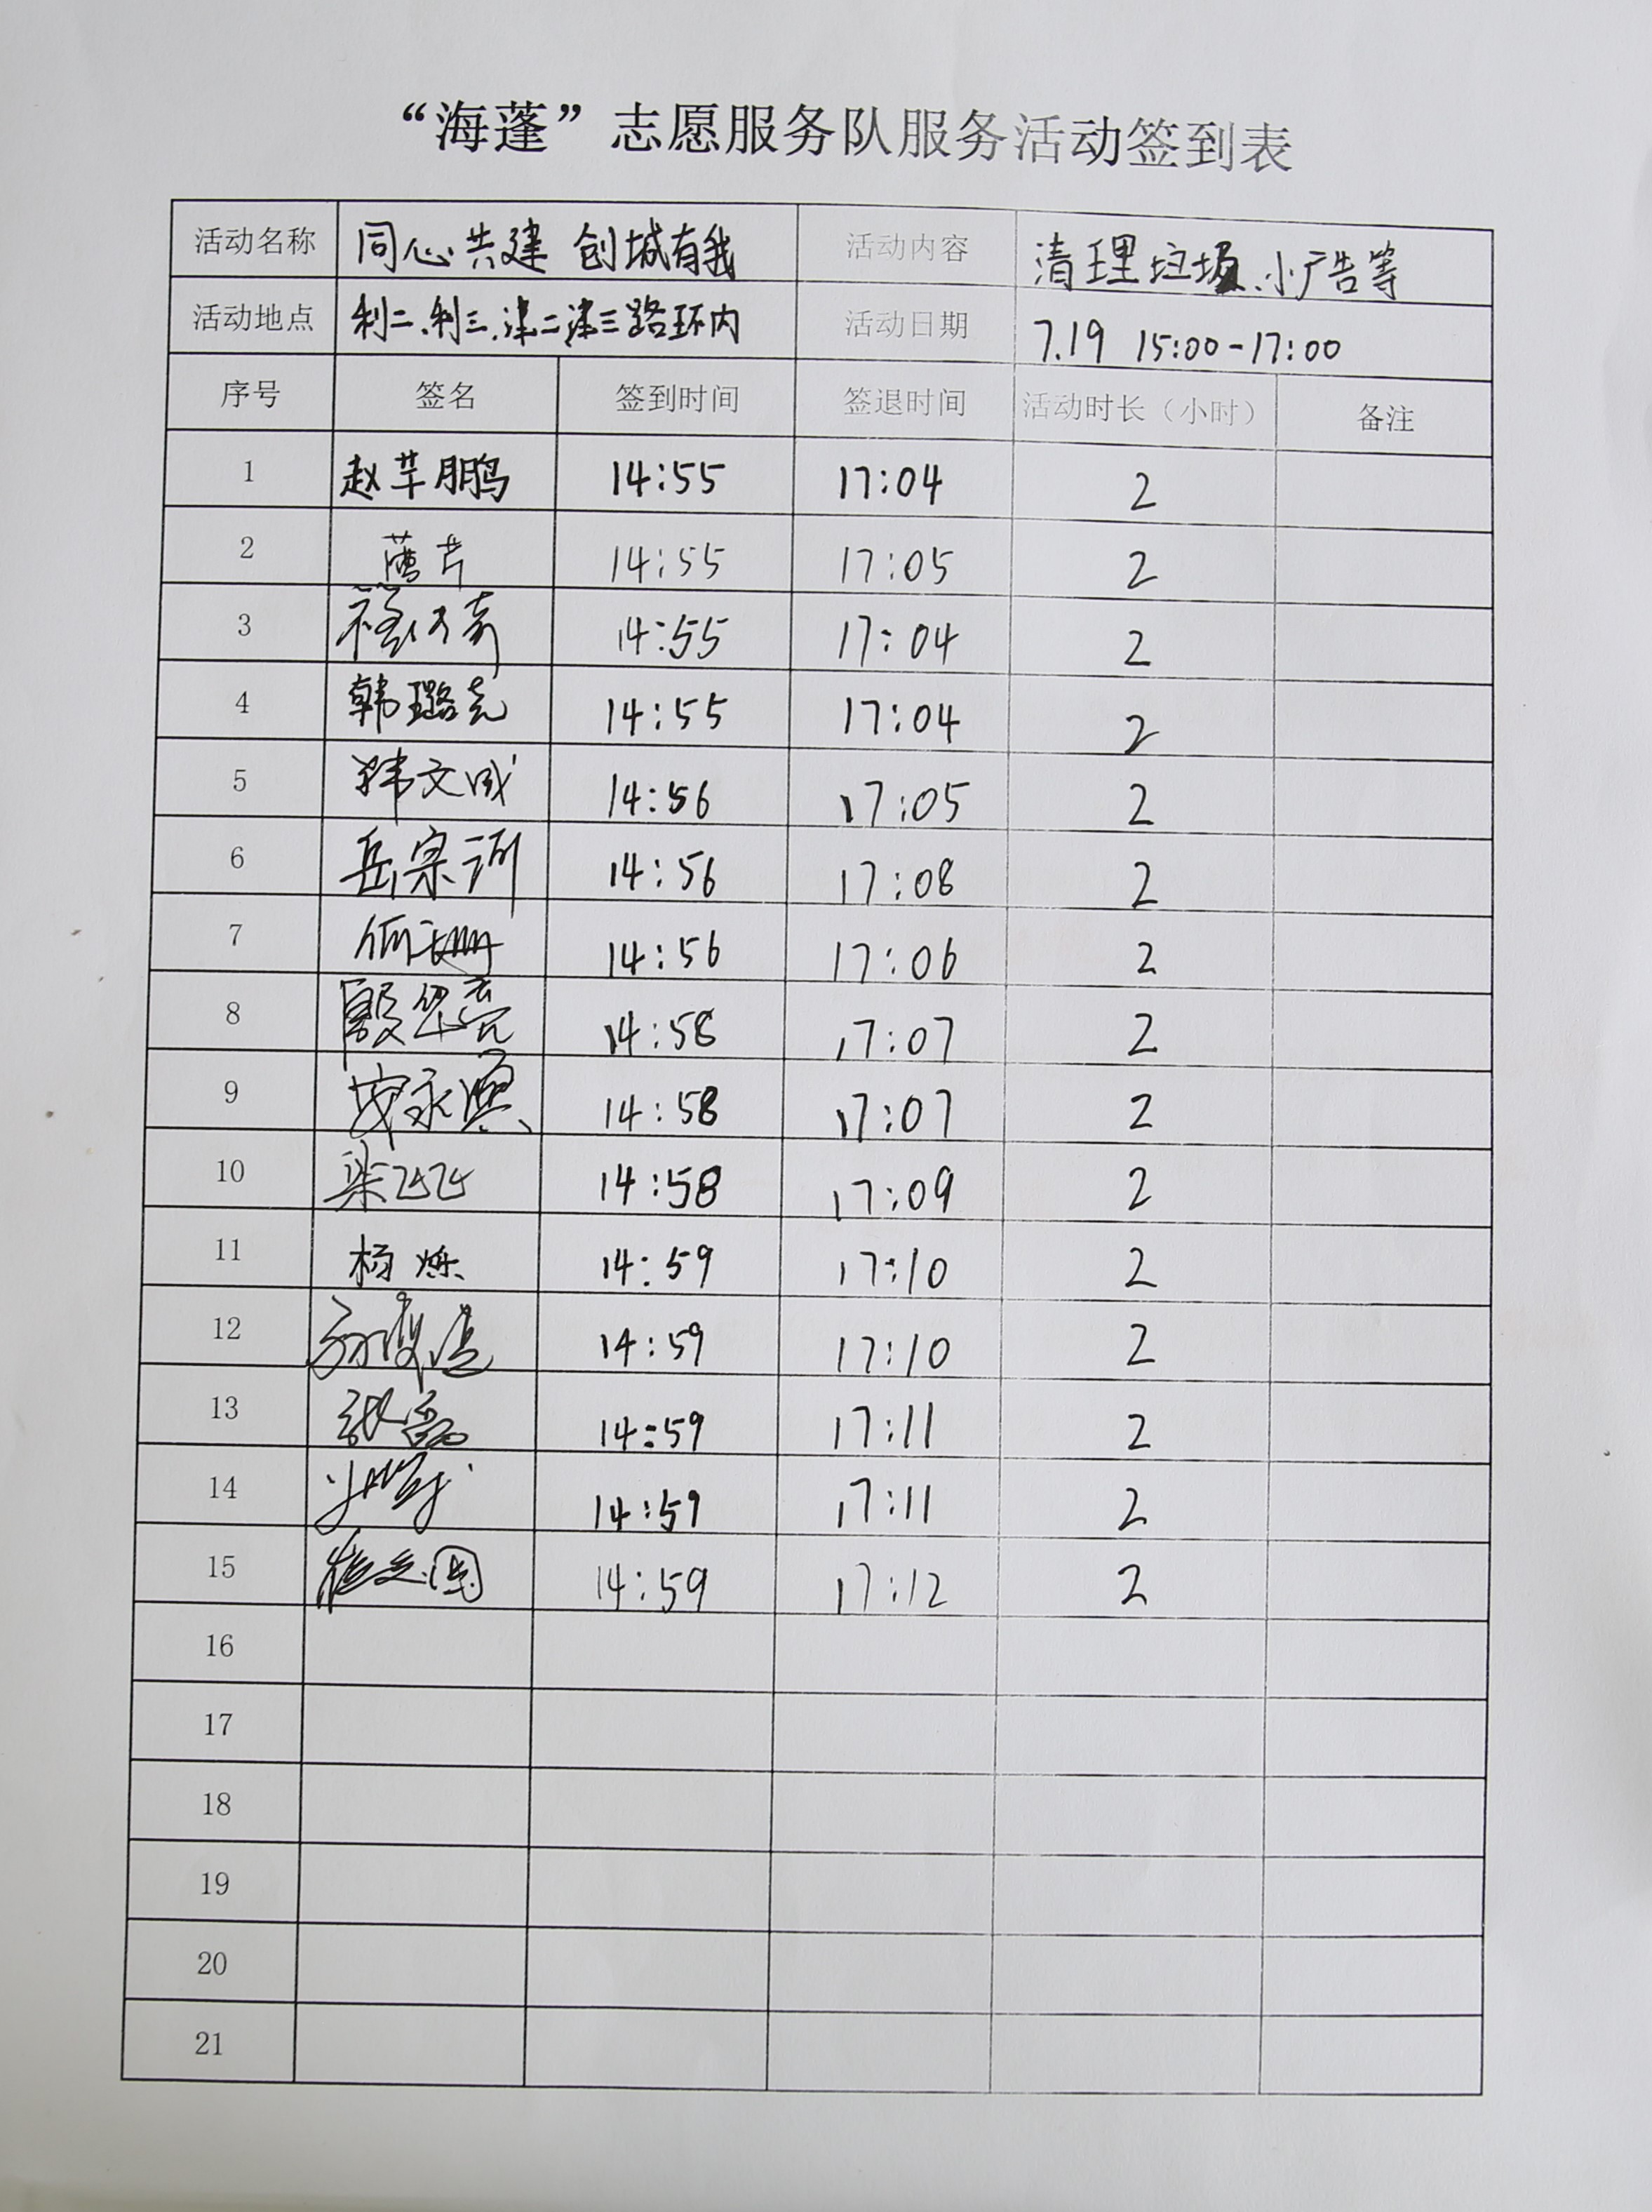 “海蓬”志愿服务队服务活动签到表
活动名称 同心共建 创城有我 活动内容 清理垃圾、小广告等
活动地点 利二、利三、津二津三路环内 活动日期 7.19 15:00-17:00
序号 签名 签到时间 签退时间 活动时长（小时） 备注
1 赵芊鹏 14:55 17:04 2
2 14:55 17:05 2
3 14:55 17:04 2
4 韩璐尧 14:55 17:04 2
5 韩文成 14:56 17:05 2
6 岳宗 14:56 17:08 2
7 14:56 17:06 2
8 殷 亮 14:58 17:07 2
9 永 14:58 17:07 2
10 梁飞飞 14:58 17:09 2
11 杨烁 14:59 17:10 2
12 14:59 17:10 2
13 张磊 14:59 17:11 2
14 14:59 17:11 2
15 国 14:59 17:12 2
16
17
18
19
20
21